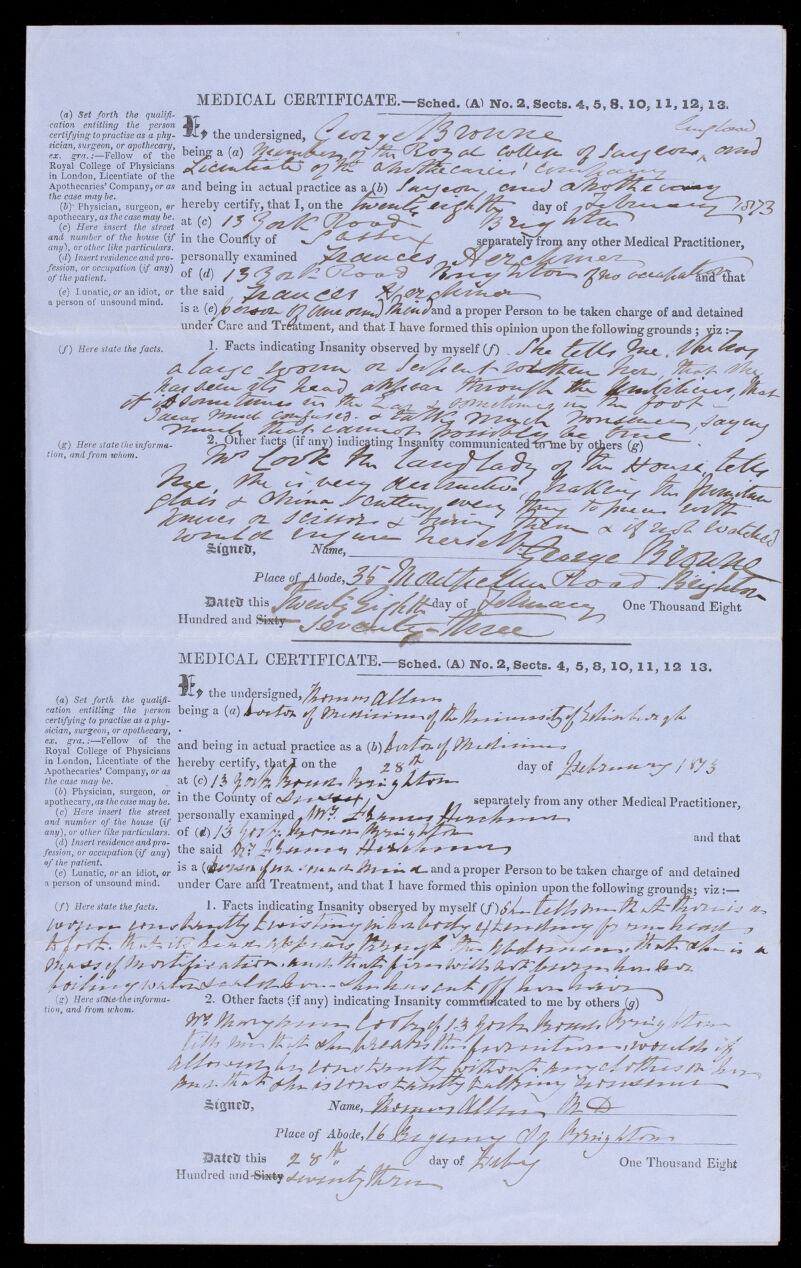 MEDICAL CERTIFICATE.—Sched. (A) No. 2, Sects. 4, 5, 8, 10, 11, 12, 13.
(a) Set forth the qualifi-
cation entitling the person
certifying to practise as a phy-
sician, surgeon, or apothecary,
ex. gra.:—Fellow of the
Royal College of Physicians
in London, Licentiate of the
Apothecaries' Company, or as
the case may be.
(b) Physician, surgeon, or
apothecary, as the case may be.
(c) Here insert the street
and number of the house (if
any), or other like particulars.
(d) Insert residence and pro-
fession, or occupation (if any)
of the patient.
(e) Lunatic, or an idiot, or
a person of unsound mind.
(f) Here state the facts.
(g) Here state the informa-
tion, and from whom.
I, the undersigned, George Browne England
being a (a) Member of the Royal College of Surgeons, and
Licentiate of the Apothecaries' Company
and being in actual practice as a (b) Surgeon, and apothecary
hereby certify, that I, on the twenty eighth day of February 1873
at (c) 13 York Road Brighton
in the County of Sussex separately from any other Medical Practitioner,
personally examined Frances Herchmer
of (d) 13 York Road Brighton of no occupation and that
the said Frances Herchmer
is a (e) person of unsound mind and a proper Person to be taken charge of and detained
under Care and Treatment, and that I have formed this opinion upon the following grounds ; viz :—
1. Facts indicating Insanity observed by myself (f) She tells me, she has
a large worm or Serpent within her, that she
has seen its head appear through the Umbilicus, that
it is sometimes in the sometimes in the foot—
Ideas much confused. & talks much nonsense, saying
much that cannot possibly be true
2. Other facts (if any) indicating Insanity communicated to me by others (g)
Mrs Cook the landlady of the House, tells
me, she is very destructive, breaking the furniture
glass & china cutting every thing to pieces with
knives or scissors & them & if not watched
would injure herself
Signed, Name, George Browne
Place of Abode, 35 Road Brighton
Dated this Twenty Eighth day of February One Thousand Eight
Hundred and Sixty Seventy-three
MEDICAL CERTIFICATE.—Sched. (A) No. 2, Sects. 4, 5, 8, 10, 11, 12 13.
(a) Set forth the qualifi-
cation entitling the person
certifying to practise as a phy-
sician, surgeon, or apothecary,
ex. gra.:—Fellow of the
Royal College of Physicians
in London, Licentiate of the
Apothecaries' Company, or as
the case may be.
(b) Physician, surgeon, or
apothecary, as the case may be.
(c) Here insert the street
and number of the house (if
any), or other like particulars.
(d) Insert residence and pro-
fession, or occupation (if any)
of the patient.
(e) Lunatic, or an idiot, or
a person of unsound mind.
(f) Here state the facts.
(g) Here state the informa-
tion, and from whom.
I, the undersigned, Thomas Allen
being a (a) Doctor of Medicine of the University of Edinburgh
and being in actual practice as a (b) Doctor of Medicine
hereby certify, that I on the 28th day of February 1873
at (c) 13 York Road Brighton
in the County of Sussex separately from any other Medical Practitioner,
personally examined Mrs. Frances Herchmer
of (d) 13 York Road Brighton and that
the said Mrs Frances Herchmer
is a (e) person of unsound mind and a proper Person to be taken charge of and detained
under Care and Treatment, and that I have formed this opinion upon the following grounds; viz :—
1. Facts indicating Insanity observed by myself (f) She tells me that there is a
worm constantly twisting in her body extending from head
to foot. that its head appears through the abdomen, that she is a
mass of mortification. and that fire will not burn her nor
boiling water scald her. She has cut off her
2. Other facts (if any) indicating Insanity communicated to me by others (g)
Mrs Mary Cook of 13 York Road Brighton
tells me that she breaks the furniture, would if
allowed be constantly without any clothes on her,
and that she is constantly talking nonsense
Signed, Name, Thomas Allen M D
Place of Abode, 16 Regency Sq Brighton
Dated this 28th day of Feby One Thousand Eight
Hundred and Sixty seventy three